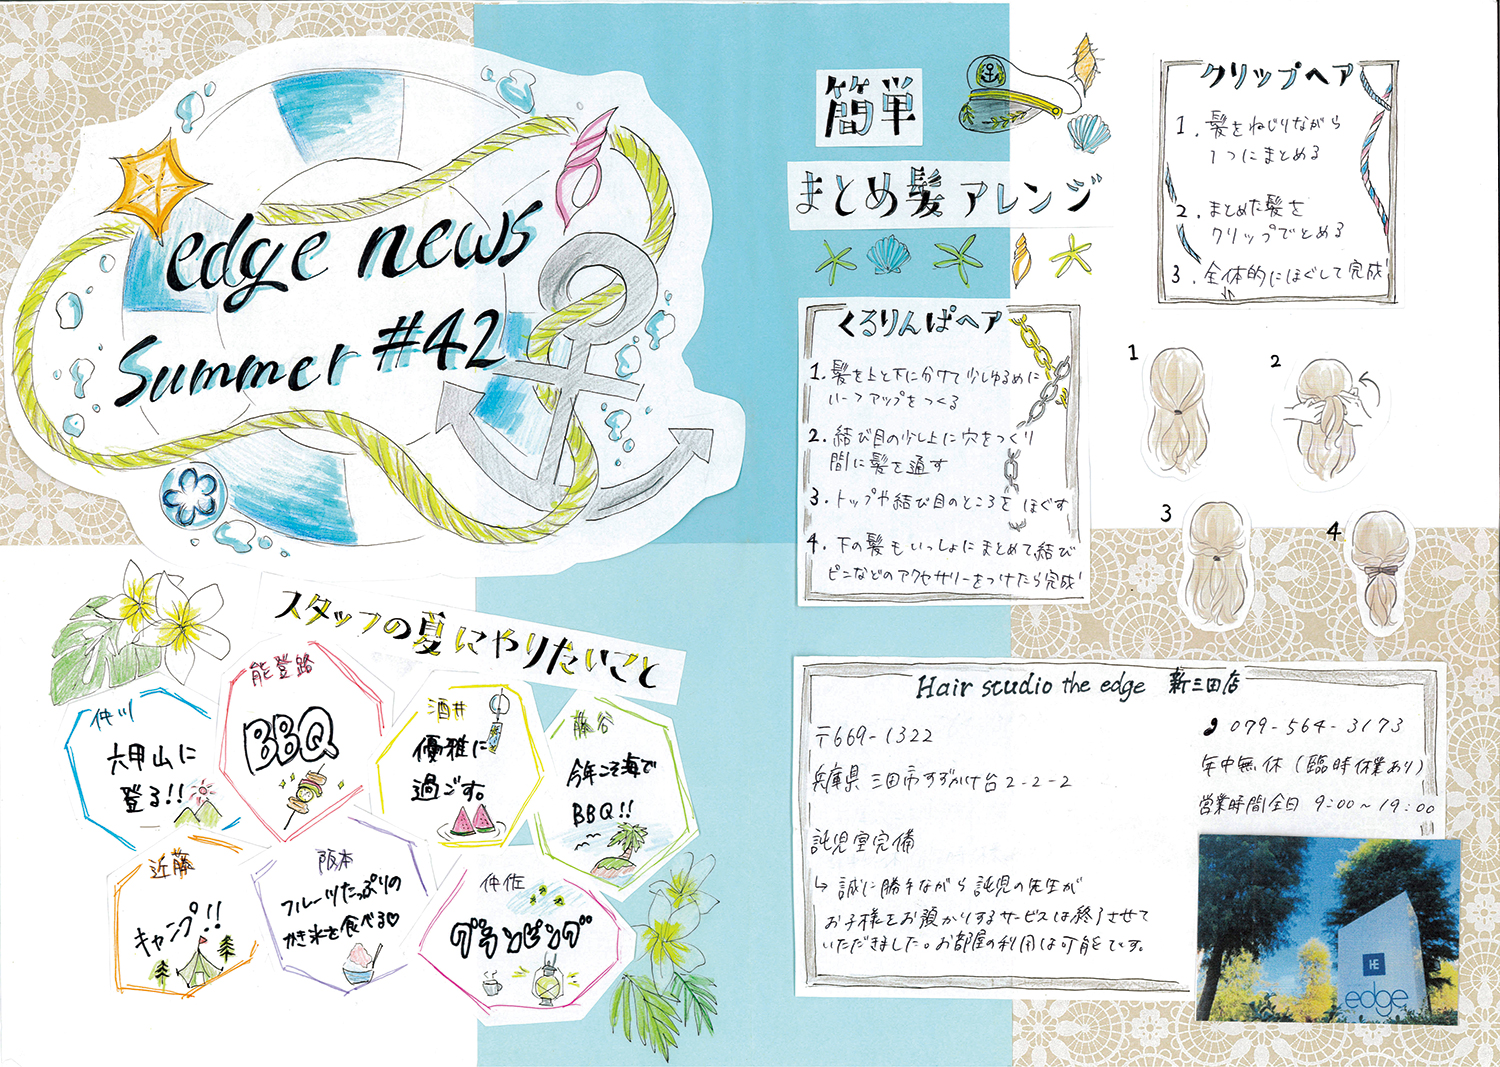 edge news
Summer #42
スタッフの夏にやりたいこと
仲川
六甲山に
登る!!
能登路
BBQ
酒井
優雅に
過ごす。
藤谷
今年こそ海で
BBQ!!
近藤
キャンプ!!
阪本
フルーツたっぷりの
かき氷を食べる♡
仲佐
グランピング
簡単
まとめ髪アレンジ
クリップヘア
1. 髪をねじりながら
1つにまとめる
2. まとめた髪を
クリップでとめる
3. 全体的にほぐして完成
くるりんぱヘア
1. 髪を上と下に分けて少しゆるめに
ハーフアップをつくる
2. 結び目の少し上に穴をつくり
間に髪を通す
3. トップや結び目のところを ほぐす
4. 下の髪もいっしょにまとめて結び
ピンなどのアクセサリーをつけたら完成
1
2
3
4
Hair studio the edge 新三田店
〒669-1322
兵庫県 三田市すずかけ台2-2-2
託児室完備
↳ 誠に勝手ながら託児の先生が
お子様をお預かりするサービスは終了させて
いただきました。お部屋の利用は可能です。
079-564-3173
年中無休(臨時休業あり)
営業時間全日 9:00~19:00
HE
edge